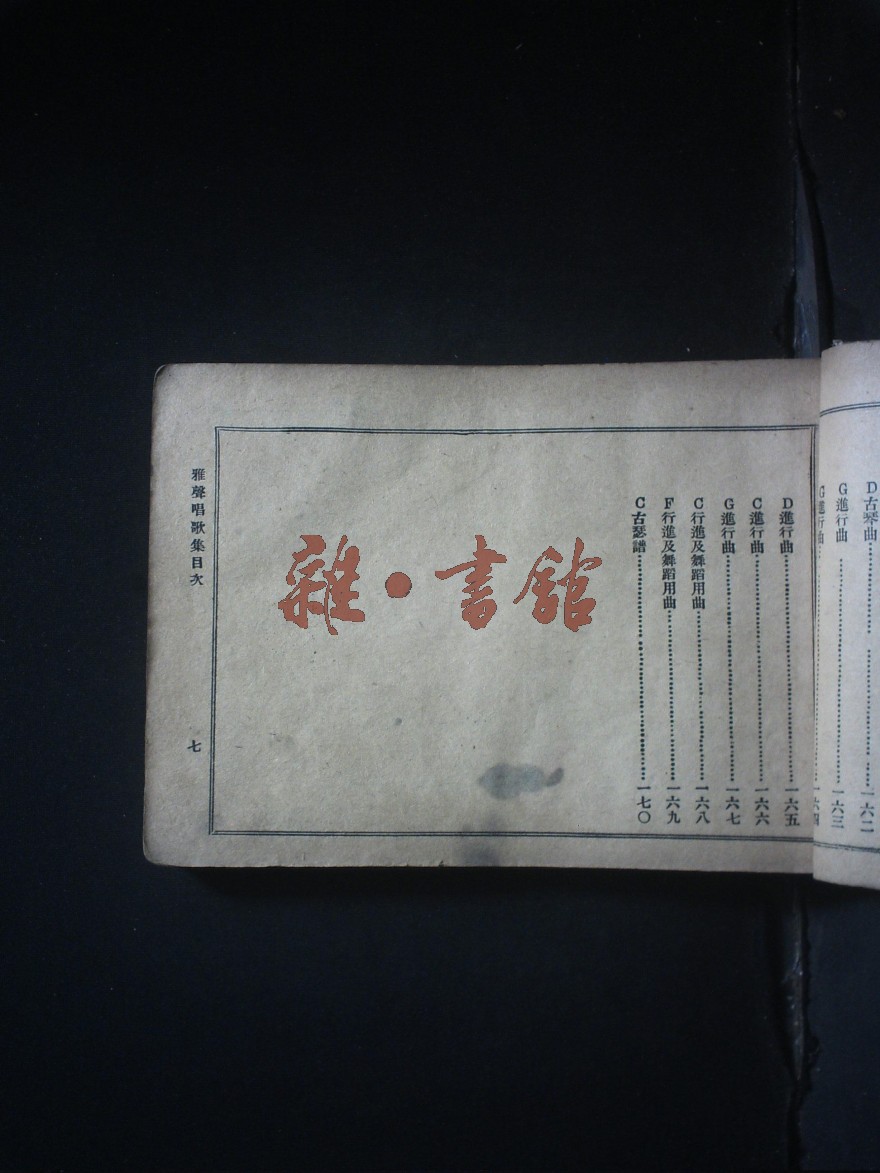 D古琴曲 一六二
G進行曲 一六三
G進行曲 一六四
D進行曲 一六五
C進行曲 一六六
G進行曲 一六七
C行進及舞蹈用曲 一六八
F行進及舞蹈用曲 一六九
C古瑟譜 一七〇
雜·書館
雅聲唱歌集目次
七